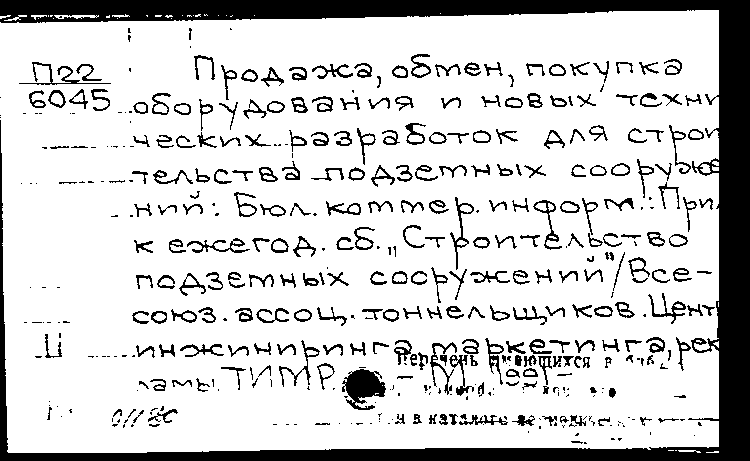 П22
6045
Продажа, обмен, покупка
оборудования и новых техни
ческих разработок для строи
тельства подземных сооруже
ний: Бюл. коммер. информ.: При
к ежегод. сб. „Строительство
подземных сооружений"/Все-
союз. ассоц. тоннельщиков. Центр
инжиниринга, маркетинга, рек
ламы. ТИМР. – М., 1991 –
Перечень имеющихся в
и в каталоге